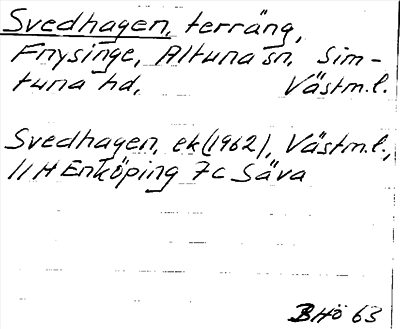 Svedhagen, terräng,
Fnysinge, Altuna sn, Sim-
tuna hd, Västm.l.
Svedhagen, ek (1962), Västm.l.,
11 H Enköping 7c Säva
BHö 63